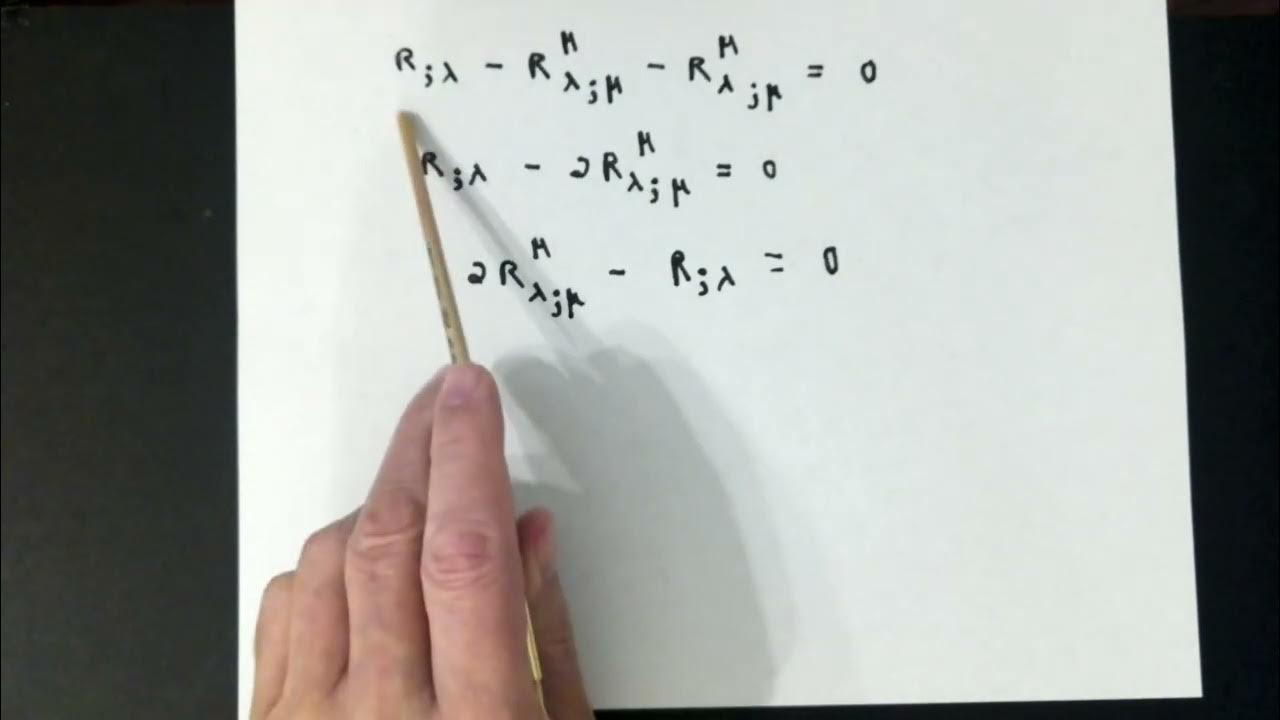 R;λ − R^μ λ;μ − R^μ λ;μ = 0
R;λ − 2R^μ λ;μ = 0
2R^μ λ;μ − R;λ = 0